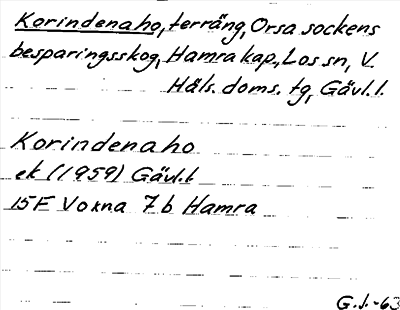 Korindenaho, terräng, Orsa sockens
besparingsskog, Hamra kap., Los sn, V.
Häls. doms. tg, Gävl. l.
Korindenaho
ek (1959) Gävl. l
15F Voxna 7b Hamra
G. J. -63